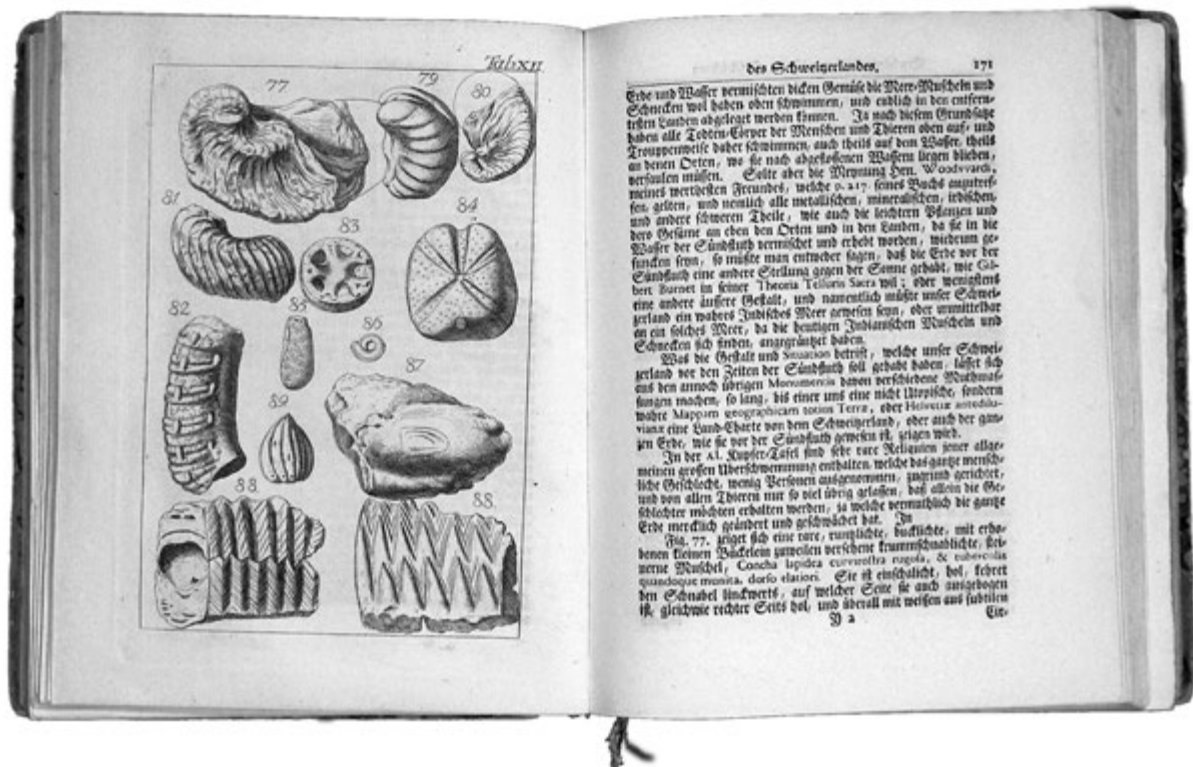 Tab. XII
77
79
80
81
83
84
82
85
86
87
89
88.
88.
des Schweitzerlandes. 171
Erde und Wasser vermischten dicken Gemüse die Meer-Muscheln und
Schnecken wol haben oben schwimmen, und endlich in den entfern-
testen Landen abgeleget werden können. Ja nach diesem Grundsatze
haben alle Todten-Cörper der Menschen und Thieren oben auf, und
Trouppenweise daher schwimmen, auch theils auf dem Wasser, theils
an denen Orten, wo sie nach abgeflossenen Wassern liegen blieben,
verfaulen müssen. Solte aber die Meynung Hen. Woodvvardi,
meines werthesten Freundes, welche p. 217. seines Buchs anzutref-
fen, gelten, und nemlich alle metallischen, mineralischen, irdischen,
und andere schweren Theile, wie auch die leichtern Pflanzen und
dero Gesäme an eben den Orten und in den Landen, da sie in die
Wasser der Sündfluth vermischet und erhebt worden, wiedrum ge-
suncken seyn, so müßte man entweder sagen, daß die Erde vor der
Sündfluth eine andere Stellung gegen der Sonne gehabt, wie Gil-
bert Burnet in seiner Theoria Telluris Sacra wil; oder wenigstens
eine andere äussere Gestalt, und namentlich müßte unser Schwei-
zerland ein wahres Indisches Meer gewesen seyn, oder unmittelbar
an ein solches Meer, da die heutigen Indianischen Muscheln und
Schnecken sich finden, angegräntzet haben.
Was die Gestalt und Situation betrift, welche unser Schwei-
zerland vor den Zeiten der Sündfluth soll gehabt haben, lässet sich
aus den annoch übrigen Monumentis davon verschiedene Muthmas-
sungen machen, so lang, bis einer uns eine nicht Utopische, sondern
wahre Mappam geographicam totius Terræ, oder Helvetiæ antedilu-
vianæ eine Land-Charte von dem Schweitzerland, oder auch der gan-
zen Erde, wie sie vor der Sündfluth gewesen ist, zeigen wird.
In der Kupfer-Tafel sind sehr rare Reliquien jener allge-
meinen grossen Uberschwemmung enthalten, welche das gantze mensch-
liche Geschlecht, wenig Personen ausgenommen, zugrund gerichtet,
und von allen Thieren nur so viel übrig gelassen, daß allein die Ge-
schlechter möchten erhalten werden, ja welche vermuthlich die gantze
Erde mercklich geändert und geschwächet hat. In
Fig. 77. zeiget sich eine rare, runtzlichte, bucklichte, mit erha-
benen kleinen Bückelein zuweilen versehene krummschnablichte, stei-
nerne Muschel, Concha lapidea curvirostra rugosa, & tuberculis
quandoque munita, dorso elatiori. Sie ist einschalicht, hol, kehret
den Schnabel linckwerts, auf welcher Seite sie auch ausgebogen
ist, gleichwie rechter Seits hol, und überall mit weissen aus subtilen
Y 2